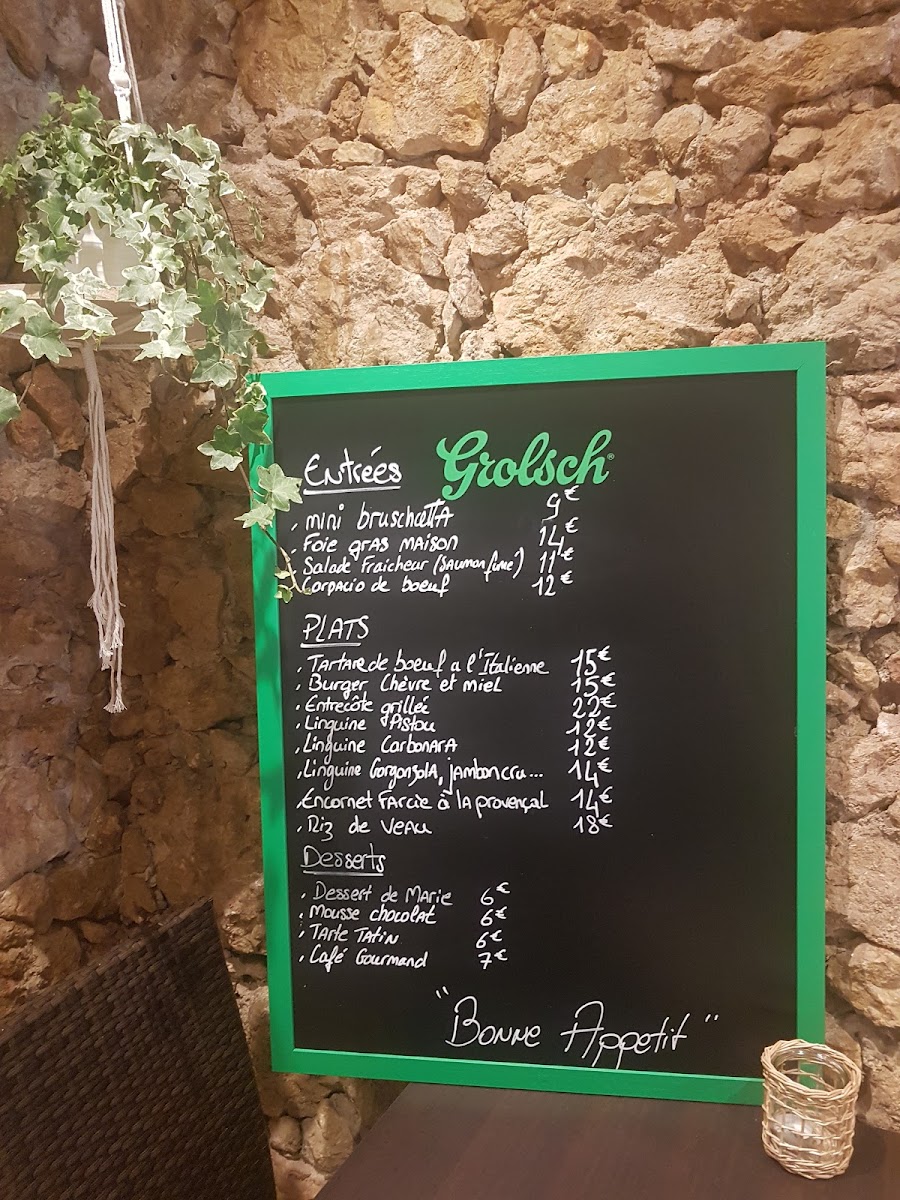 Entrées Grolsch®
, mini bruschetta 9€
, Foie gras maison 14€
, Salade Fraicheur (Saumon fumé) 11€
, Corpacio de boeuf 12€
PLATS
, Tartare de boeuf a l'Italienne 15€
, Burger Chèvre et miel 15€
, Entrecôte grillée 22€
, Linguine Pistou 12€
, Linguine Carbonara 12€
, Linguine Gorgonzola, jambon cru... 14€
, Encornet Farcie à la provençal 14€
, Riz de Veau 18€
Desserts
, Dessert de Marie 6€
, Mousse chocolat 6€
, Tarte Tatin 6€
, Café Gourmand 7€
"Bonne Appetit"